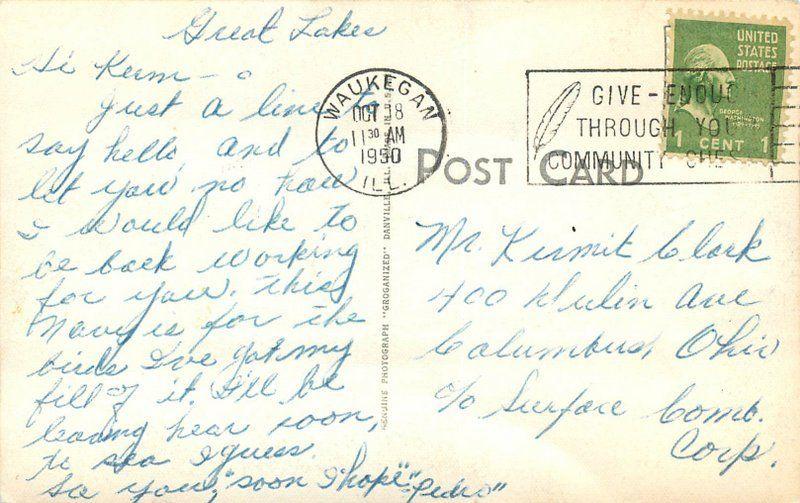 Great Lakes
Hi Kerm -
Just a line to
say hello, and to
let you no how
I would like to
be back working
for you. This
Navy is for the
birds I've got my
fill of it. I'll be
leaving hear soon,
to sea I guess.
So you, "soon I hope"
"Pedro"
WAUKEGAN
OCT 8
11 30 AM
1950
ILL.
GIVE-ENOUG
THROUGH YOU
COMMUNITY CHES
UNITED
STATES
POSTAGE
GEORGE
WASHINGTON
1 CENT 1
POST CARD
GENUINE PHOTOGRAPH "GROGANIZED" DANVILLE, ILL. MADE IN U.S.A.
Mr. Kermit Clark
400 Dulin Ave
Columbus, Ohio
c/o Surface Comb.
Corp.